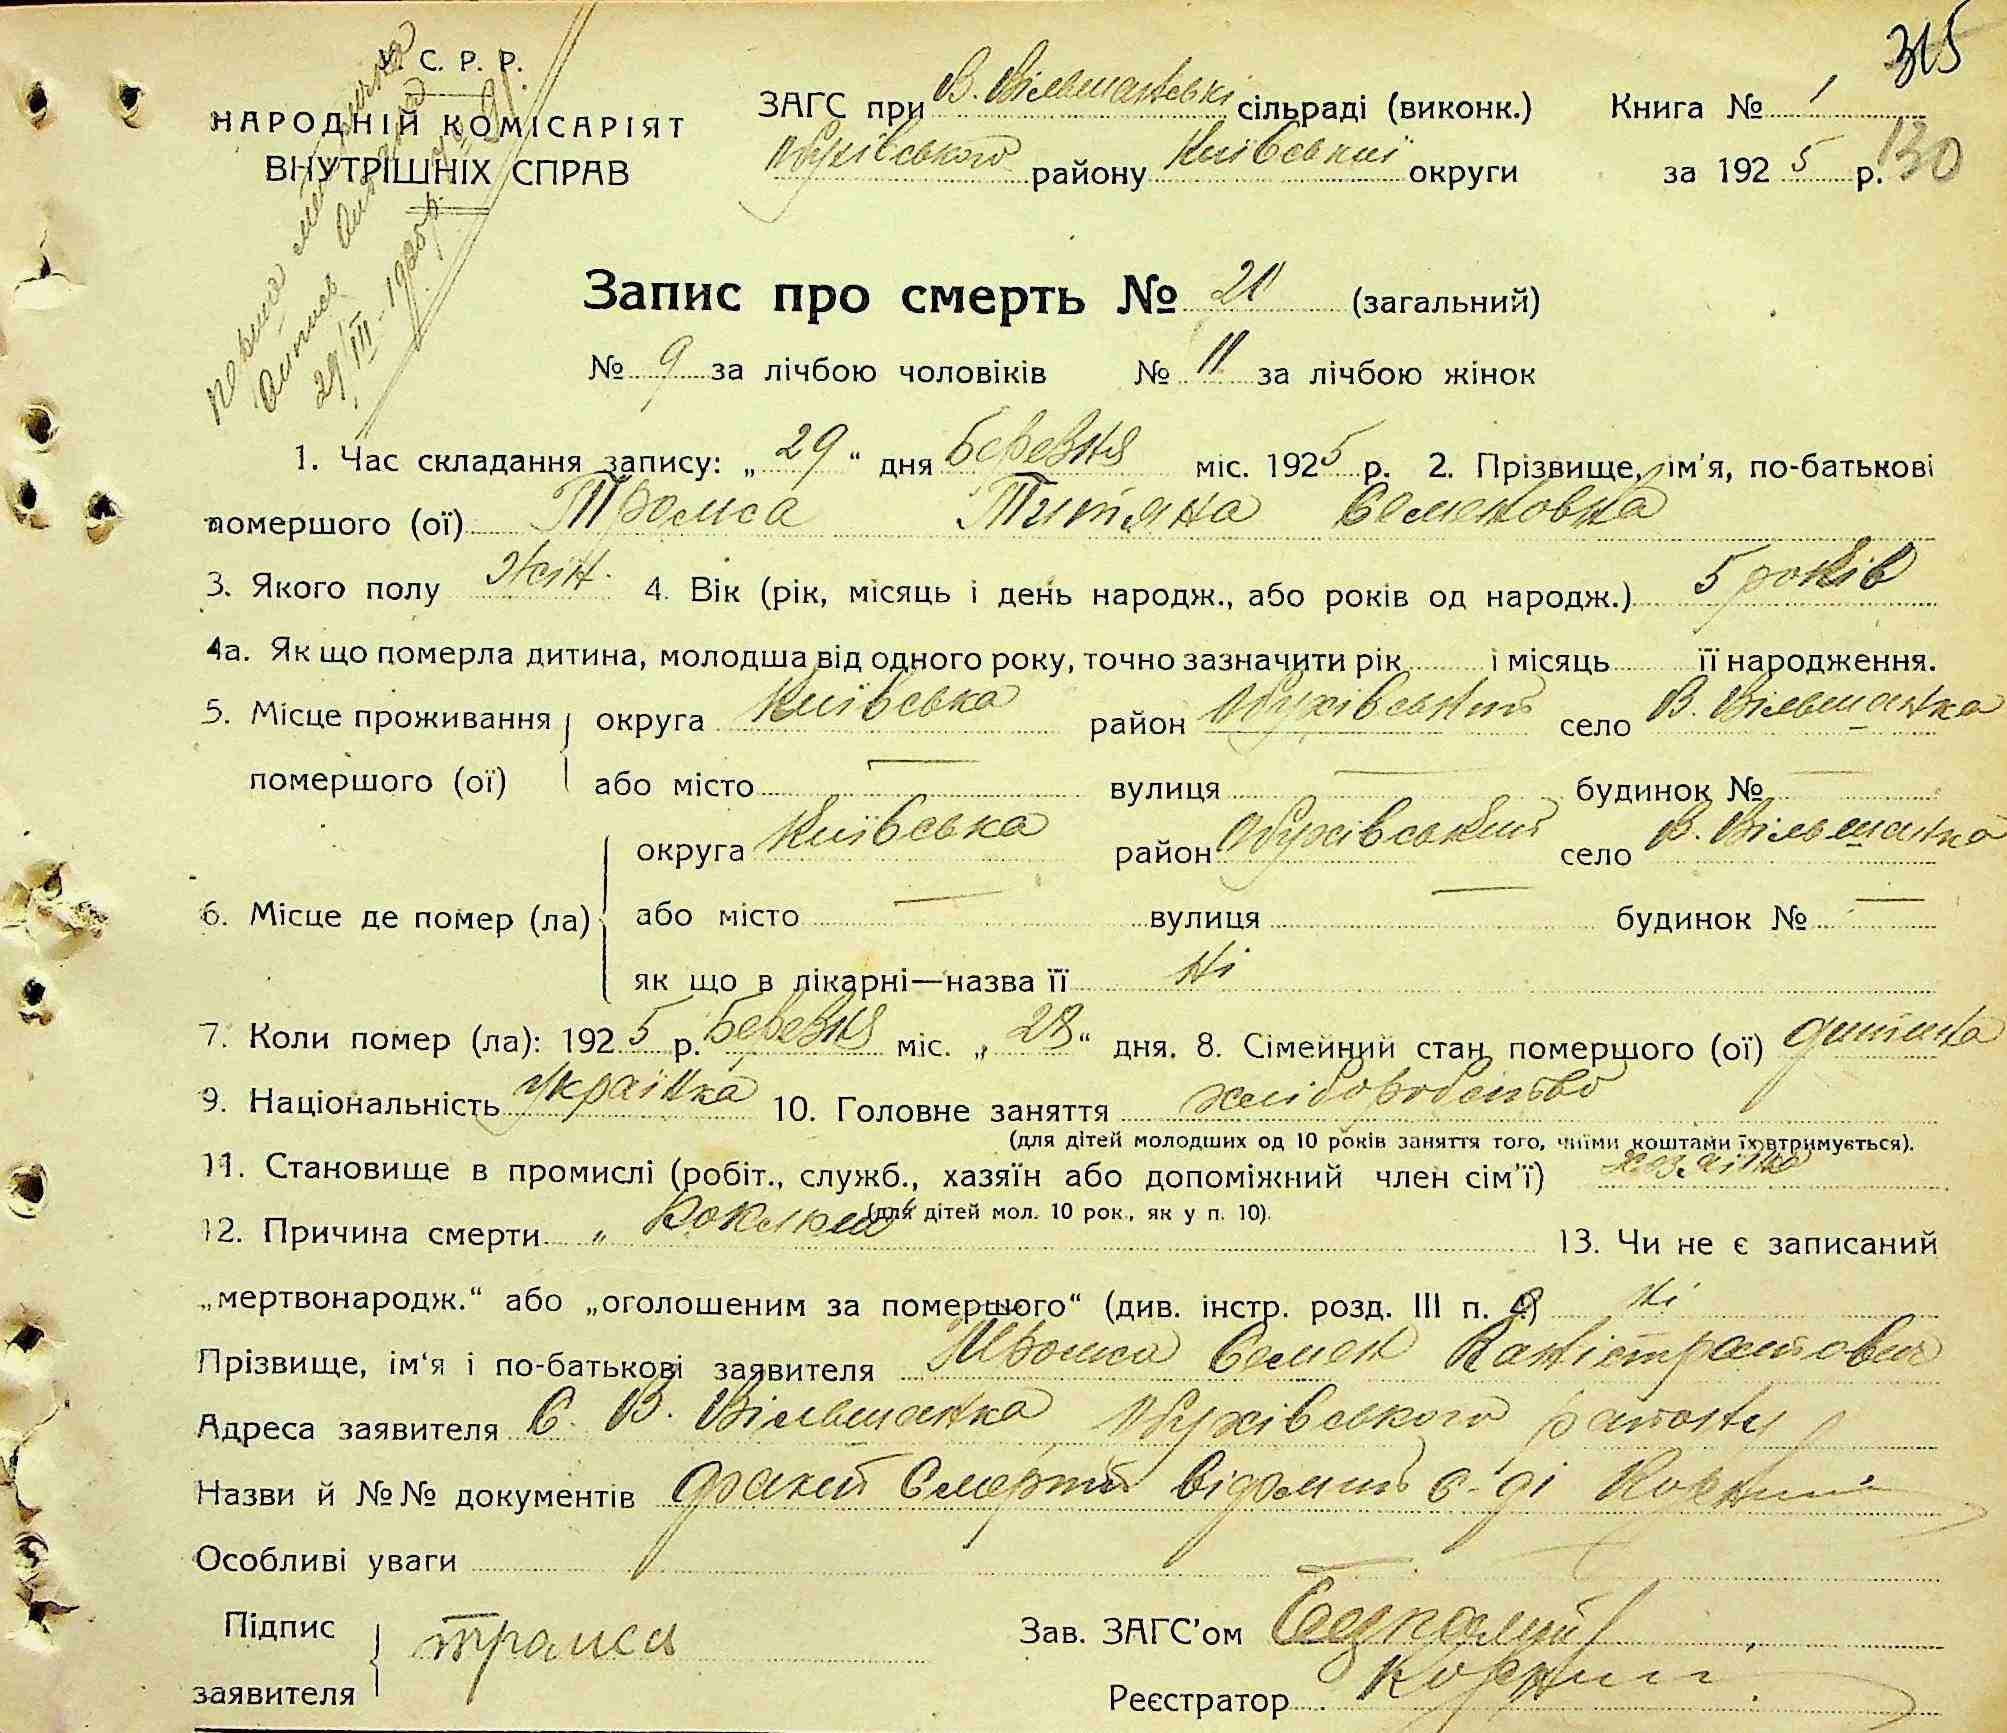 315
У. С. Р. Р.
НАРОДНІЙ КОМІСАРІЯТ
ВНУТРІШНІХ СПРАВ
ЗАГС при В. Вільшанські сільраді (виконк.) Книга № 1
Обухівського району Київської округи за 1925 р. 130
29/III - 1925 р.
Запис про смерть № 20 (загальний)
№ 9 за лічбою чоловіків № 11 за лічбою жінок
1. Час складання запису: „ 29 “ дня Березня міс. 1925 р. 2. Прізвище, ім'я, по-батькові
помершого (ої) Тромса Титяна Семеновна
3. Якого полу жін. 4. Вік (рік, місяць і день народж., або років од народж.) 5 років
4а. Як що померла дитина, молодша від одного року, точно зазначити рік і місяць її народження.
5. Місце проживання округа Київська район Обухівський село В. Вільшанка
помершого (ої) або місто — вулиця — будинок № —
округа Київська район Обухівський село В. Вільшанка
6. Місце де помер (ла) або місто — вулиця — будинок № —
як що в лікарні—назва її ні
7. Коли помер (ла): 1925 р. Березня міс. „ 28 “ дня. 8. Сімейний стан помершого (ої) дитина
9. Національність українка 10. Головне заняття хліборобство
(для дітей молодших од 10 років заняття того, чиїми коштами їх втримується).
11. Становище в промислі (робіт., служб., хазяїн або допоміжний член сім'ї)
(для дітей мол. 10 рок., як у п. 10).
12. Причина смерти „ Коклюш “ 13. Чи не є записаний
„мертвонародж.“ або „оголошеним за помершого“ (див. інстр. розд. III п. ) ні
Прізвище, ім'я і по-батькові заявителя Тромса Семен Каністратович
Адреса заявителя с. В. Вільшанка Обухівського району
Назви й №№ документів факт смерти відомий с-ді Корний
Особливі уваги
Підпис заявителя тромса
Зав. ЗАГС'ом
Реєстратор Корний